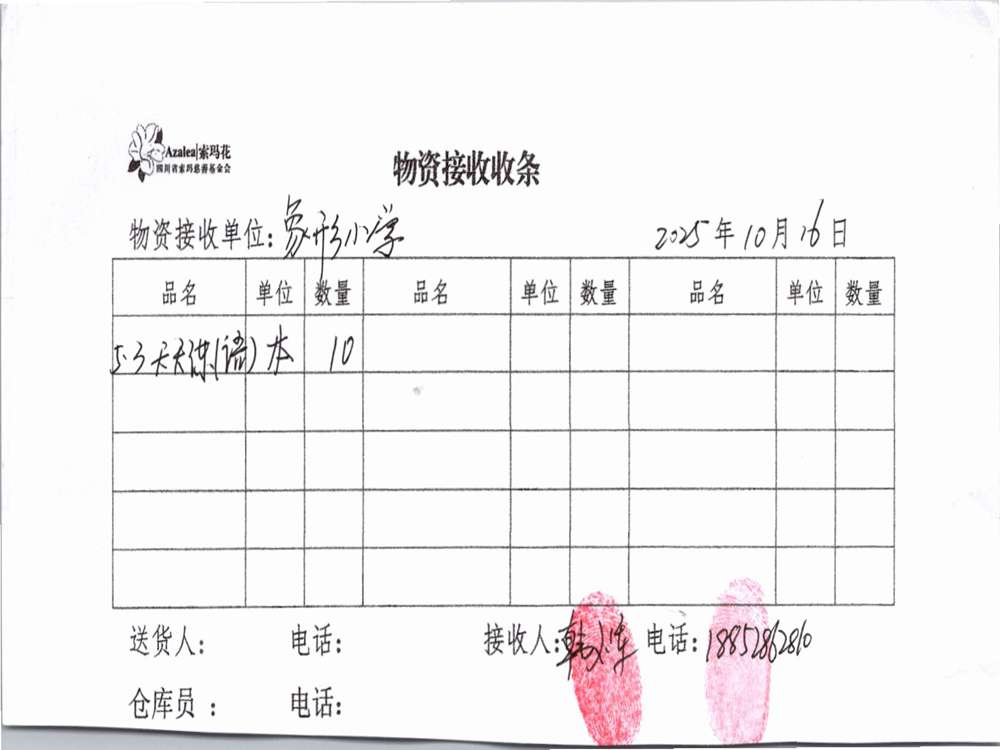 Azalea|索玛花
四川省索玛慈善基金会
物资接收收条
物资接收单位：象形小学 2025年10月16日
品名 单位 数量 品名 单位 数量 品名 单位 数量
5·3天天练(语) 本 10
送货人： 电话： 接收人：韩 电话：18852862860
仓库员： 电话：